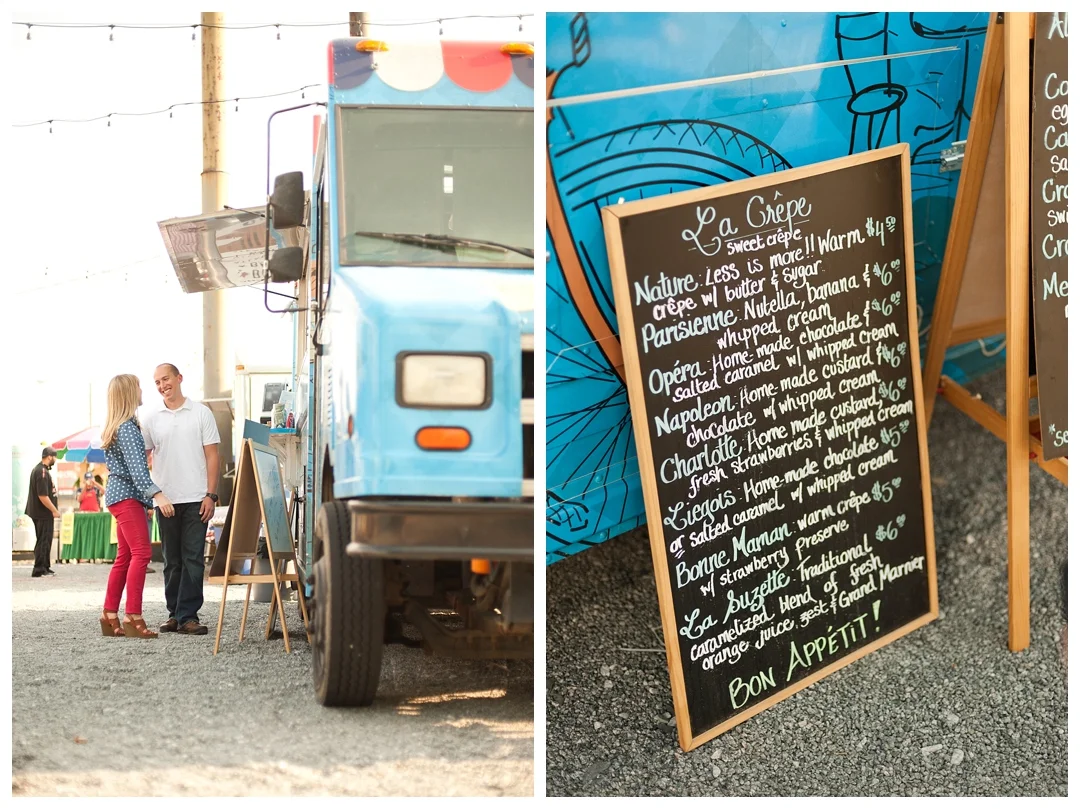 La Crêpe
sweet crêpe
Nature: Less is more!! Warm $4.50
crêpe w/ butter & sugar
Parisienne: Nutella, banana & $6.00
whipped cream
Opéra: Home-made chocolate & $6.00
salted caramel w/ whipped cream
Napoleon: Home-made custard & $6.00
chocolate w/ whipped cream
Charlotte: Home made custard, $6.00
fresh strawberries & whipped cream
Liegois: Home-made chocolate $5.00
or salted caramel w/ whipped cream
Bonne Maman: warm crêpe $5.00
w/ strawberry preserve
La Suzette: Traditional $6.00
caramelized blend of fresh
orange juice, zest & Grand Marnier
BON APPÉTIT!